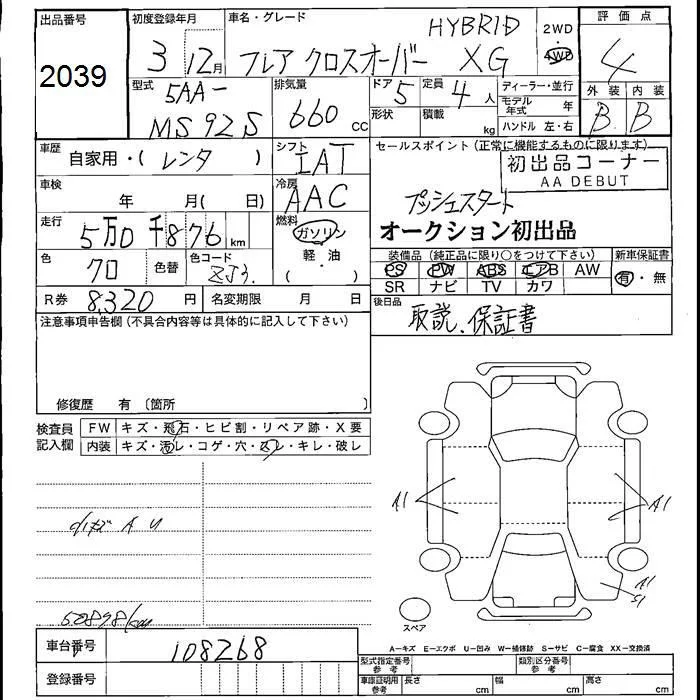 出品番号 2039
初度登録年月 3 12月
車名・グレード フレア クロスオーバー HYBRID XG
2WD
4WD
評価点 4
外装 内装
B B
型式 5AA-
MS92S
排気量 660 CC
ドア 5
定員 4 人
形状 積載 kg
ディーラー・並行
モデル年式 年
ハンドル 左・右
車歴 自家用・(レンタ )
シフト IAT
セールスポイント (正常に機能するものに限ります)
初出品コーナー
AA DEBUT
車検 年 月( 日)
冷房 AAC
プッシュスタート
オークション初出品
走行 5万0千876 km
燃料 ガソリン
軽・油
( )
色 70 色替
色コード ZJ3
装備品 (純正品に限り○をつけて下さい) 新車保証書
PS PW ABS エアB AW 有・無
SR ナビ TV カワ
R券 8,320 円 名変期限 月 日
後日品
取説、保証書
注意事項申告欄 (不具合内容等は具体的に記入して下さい)
修復歴 有 〔箇所 〕
検査員記入欄
FW キズ・飛石・ヒビ割・リペア跡・X要
内装 キズ・汚レ・コゲ・穴・スレ・キレ・破レ
A1 A1
A U
A1
S1
50898/km
スペア
A−キズ E−エクボ U−凹み W−補修跡 S−サビ C−腐食 XX−交換済
車台番号 108268
登録番号
型式指定番号 参考 類別区分番号 参考
車庫証明用 参考 長さ cm 幅 cm 高さ cm